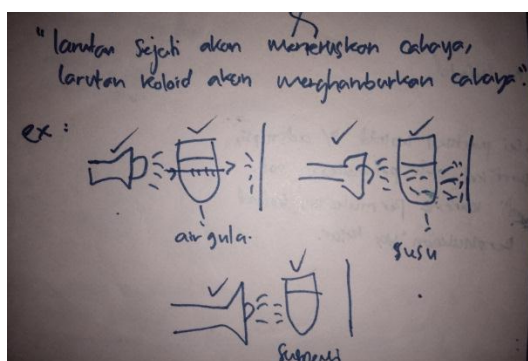 "larutan sejati akan meneruskan cahaya,
larutan koloid akan menghamburkan cahaya".
ex :
air gula.
susu